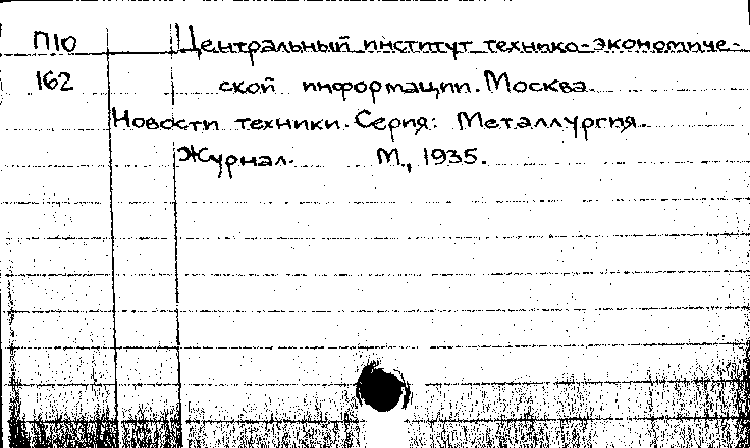 П10 Центральный институт технико-экономиче-
162 ской информации. Москва.
Новости техники. Серия: Металлургия.
Журнал. М., 1935.